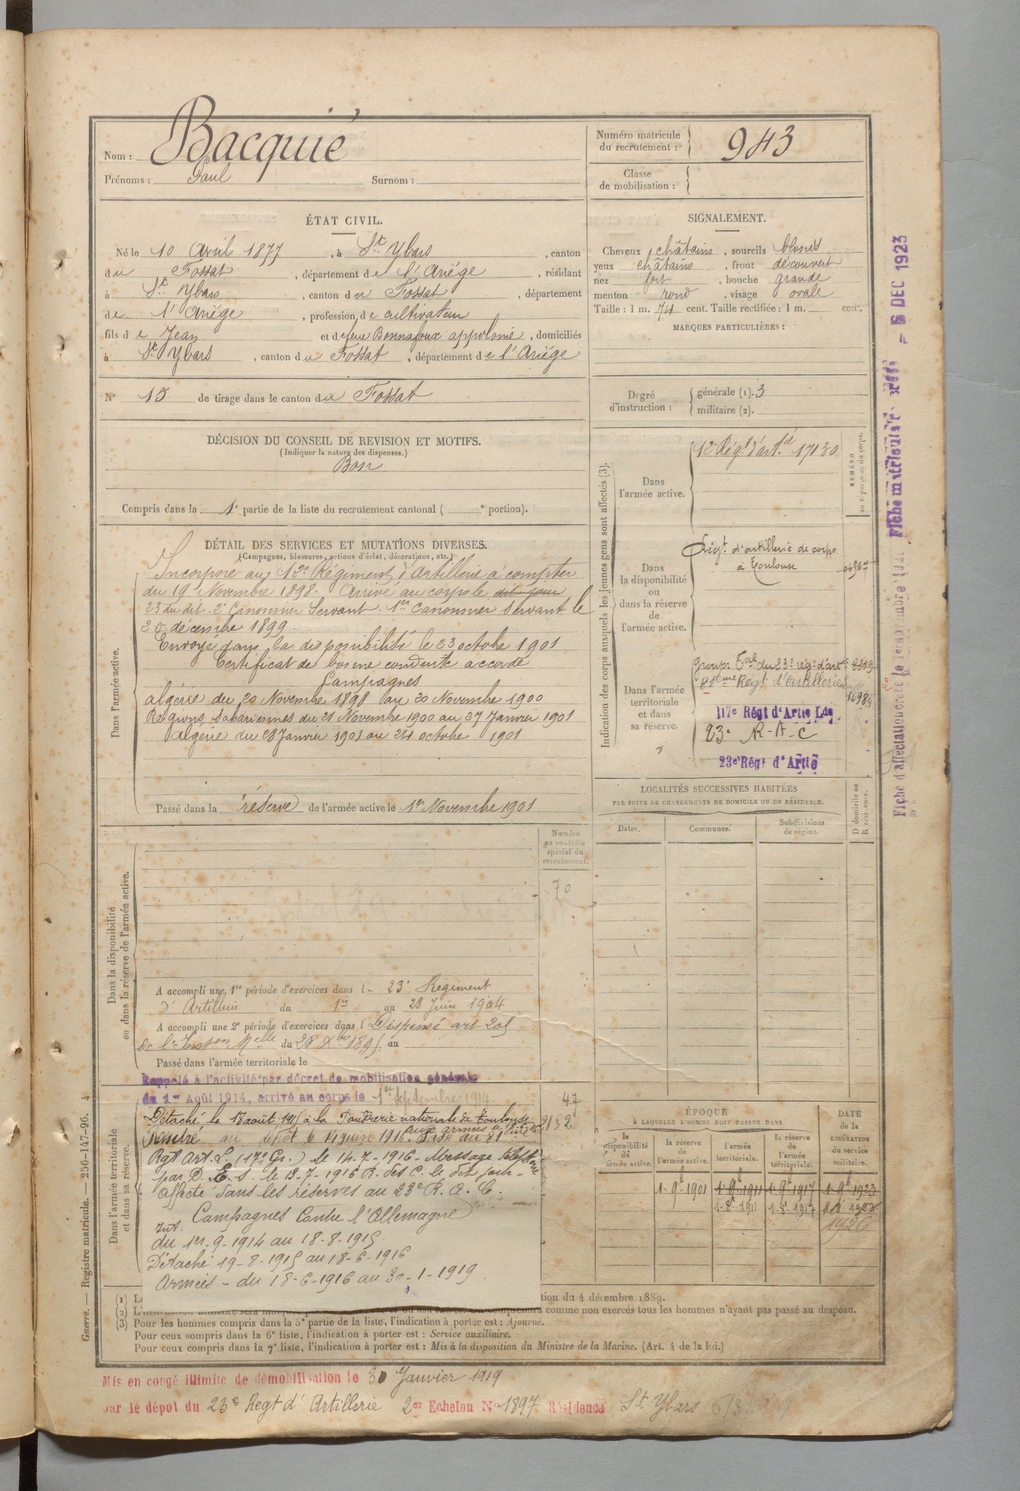 Nom : Bacquié
Prénoms : Paul Surnom :
Numéro matricule du recrutement : 943
Classe de mobilisation :
ÉTAT CIVIL.
Né le 10 Avril 1877, à St Ybars, canton
du Fossat, département de l'Ariége, résidant
à St Ybars, canton du Fossat, département
de l'Ariége, profession de cultivateur
fils de Jean et de feue Bonnafoux appolonie, domiciliés
à St Ybars, canton du Fossat, département de l'Ariége
N° 15 de tirage dans le canton du Fossat
SIGNALEMENT.
Cheveux châtains, sourcils blonds
yeux châtains, front découvert
nez fort, bouche grande
menton rond, visage ovale
Taille : 1 m. 74 cent. Taille rectifiée : 1 m. cent.
MARQUES PARTICULIÈRES :
Degré d'instruction : générale (1). 3
militaire (2).
DÉCISION DU CONSEIL DE REVISION ET MOTIFS.
(Indiquer la nature des dispenses.)
Bon
Compris dans la 1e partie de la liste du recrutement cantonal ( e portion).
DÉTAIL DES SERVICES ET MUTATIONS DIVERSES.
(Campagnes, blessures, actions d'éclat, décorations, etc.)
Dans l'armée active.
Incorporé au 12e Régiment d'Artillerie à compter
du 19 Novembre 1898. Arrivé au corps le dit jour
23 du dit. 2e Canonnier Servant. 1er Canonnier Servant le
25 décembre 1899.
Envoyé dans la disponibilité le 23 octobre 1901
Certificat de bonne conduite accordé
Campagnes
Algérie du 20 Novembre 1898 au 20 Novembre 1900
Régions Sahariennes du 21 Novembre 1900 au 27 Janvier 1901
Algérie du 28 Janvier 1901 au 24 octobre 1901
Passé dans la réserve de l'armée active le 1er Novembre 1901
Indication des corps auxquels les jeunes gens sont affectés (3).
Dans l'armée active.
12e Régt d'art.ie 17130
NUMÉRO
Dans la disponibilité ou dans la réserve de l'armée active.
Régt d'artillerie de corps
à Toulouse
Dans l'armée territoriale et dans sa réserve.
Groupe Tal du 23e rég. d'art.ie
Régt d'Artillerie
117e Régt d'Artie Lde
23e R-A-C
23e Régt d'Artie
LOCALITÉS SUCCESSIVES HABITÉES
PAR SUITE DE CHANGEMENTS DE DOMICILE OU DE RÉSIDENCE.
Dates. Communes. Subdivisions de région. D domicile ou R résidence.
Numéro au contrôle spécial du recrutement.
70
Dans la disponibilité ou dans la réserve de l'armée active.
A accompli une 1re période d'exercices dans l- 23e Régiment
d'Artillerie du 1er au 28 Juin 1904
A accompli une 2e période d'exercices dans l Dispensé art 208
de l'Inston Melle du 28 Xbre 1895 au
Passé dans l'armée territoriale le
Dans l'armée territoriale et dans sa réserve.
Rappelé à l'activité par décret de mobilisation générale
du 1er Août 1914, arrivé au corps le 1er Septembre 1914.
47
Détaché le 18 août 1915 à la Poudrerie nationale de Toulouse
Rentré au dépôt le 14 juin 1916.
Rgt Art. L. (117e) le 14.7-1916. Message
par D. E. S. le 13-7-1916
Affecté dans les réserves au 23e R. A. C.
Campagnes Contre l'Allemagne
Int. du 1er-9-1914 au 18-8-1915
Détaché 19-8-1915 au 18-6-1916
Armées - du 18-6-1916 au 30-1-1919
ÉPOQUE
À LAQUELLE L'HOMME DOIT PASSER DANS
la disponibilité de l'armée active. la réserve de l'armée active. l'armée territoriale. la réserve de l'armée territoriale. DATE de la LIBÉRATION du service militaire.
1-9bre 1901 1-9bre 1911 1-9bre 1917 1-9bre 1923
1926
tion du 4 décembre 1889.
comme non exercés tous les hommes n'ayant pas passé au drapeau.
(3) Pour les hommes compris dans la 5e partie de la liste, l'indication à porter est : Ajourné.
Pour ceux compris dans la 6e liste, l'indication à porter est : Service auxiliaire.
Pour ceux compris dans la 7e liste, l'indication à porter est : Mis à la disposition du Ministre de la Marine. (Art. 4 de la loi.)
Mis en congé illimité de démobilisation le 30 Janvier 1919
par le dépôt du 23e Regt d'Artillerie 2er Echelon N° 1897 Résidence St Ybars
Guerre. — Registre matricule. — 256-147-96. 4
- 5 DEC 1923